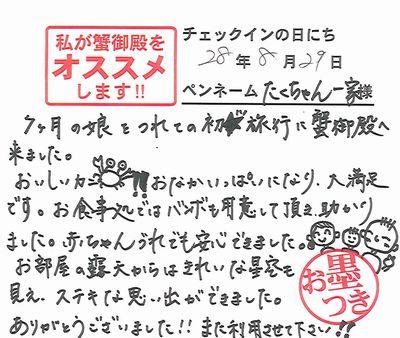 私が蟹御殿を
オススメ
します!!
チェックインの日にち
28年8月29日
ペンネーム たくちゃん一家様
7ヶ月の娘をつれての初旅行に蟹御殿へ
来ました。
おいしいカニでおなかいっぱいになり、大満足
です。お食事処ではバンボも用意して頂き助かり
ました。赤ちゃんづれでも安心できました。
お部屋の露天からはきれいな星空も
見え、ステキな思い出ができました。
ありがとうございました!!また利用させて下さい!!
お墨つき